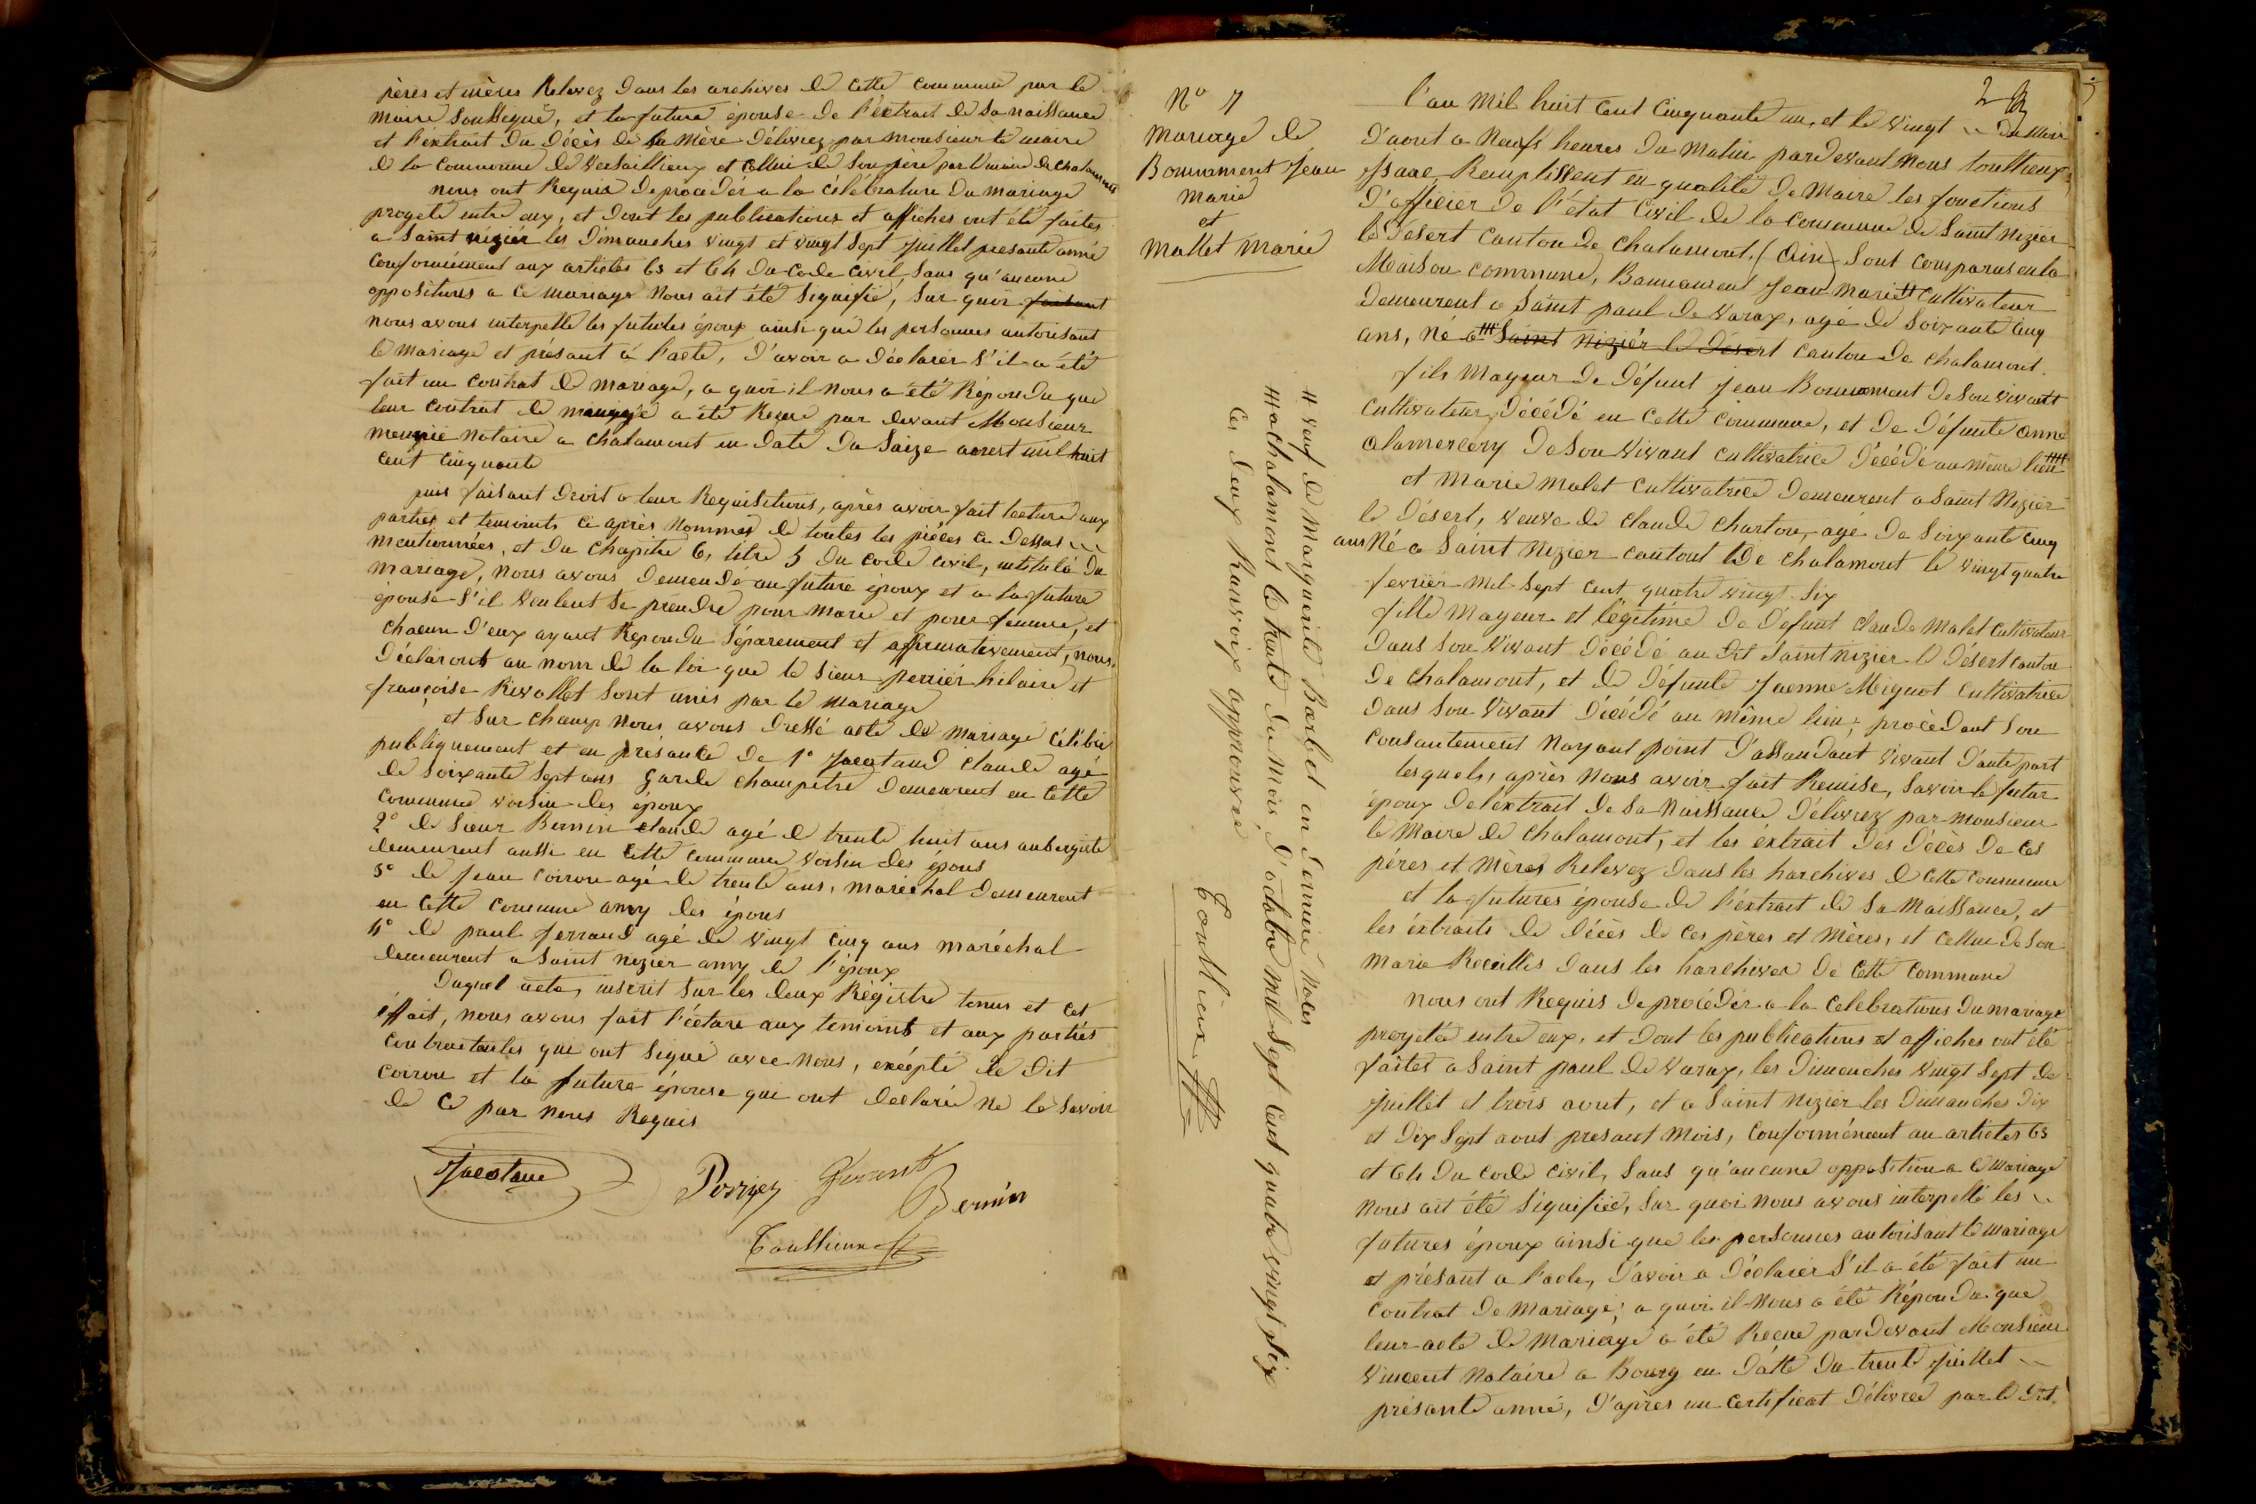 pères et mères Relevez dans les archives de cette commune par le
maire Soussigné, et la future épouse de l'éxtrait de Sa naissance
et l'éxtrait du Décès de Sa Mère Délivrez par Monsieur le maire
de la Commune de Versaillieux et Cellui de Son père par l'maire de Chalamont
nous ont Requis de procédér a la célébrature du mariage
progeté entre eux, et dont les publications et affiches ont été faites
a Saint nizièr les Dimanches vingt et vingt Sept Juillet présante anné
Conformément aux articles 63 et 64 du Code Civil, Sans qu'aucune
oppositures a ce mariage Nous ait été Signifié, Sur quoi faisant
nous avons interpellé les futures époux ainsi qué les personnes autorisant
le mariage et présant à l'acte, d'avoir a Déclarér S'il a été
fait un contrat de mariage, a quoi il nous a été Répondu que
leur contrat de mariage a été Reçue par devant Monsieur
notaire a Chalamont en date du Saize mil huit
cent cinquante
puis faisant Droit a leur Requisiturs, après avoir fait lecture aux
parties et temoints ci après Nommés de toutes les pièces ci Dessus
mentionnées, et du Chapitre 6, titre 5 du code civil, intitulé du
mariage, nous avons Demendé au future époux et a la future
épouse S'il Veulent Se prendre pour Marie et pour femme, et
chacun D'eux ayant Répondu Séparement et affirmativement, nous
Déclaront au nom de la loi que le Sieur perriér hilaire et
françoise Rivollet Sont unis par le mariage
et Sur champ Nous avons Dressé acte de mariage Célébré
publiquement et en présance de 1° Jacotand Claude agé
de Soixante Sept ans Garde Champètre Demeurent en Cette
Commune voisin des époux
2° de Sieur Bernin Claude agé de trente huit ans aubergiste
demeurent aussi en Cette commune Voisin des épous
3° de Jean Coiron agé de trente ans, maréchal Demeurent
en Cette Commune amy des épous
4° de paul ferrand agé de Vingt Cinq ans maréchal
demeurent a Saint nizier amy de l'époux
Duquel acte, inscrit Sur les deux Régistre tenus et cet
éffait, nous avons fait l'écture aux temoints et aux partiés
Contractantes qui ont Signé avec Nous, excépté le Dit
Coiron et la future épouse qui ont déclaré Ne le Savoir
de Ce par nous Requis
Jacotand
Perrier ferrand
Bernin
Toullieux
N° 7
Mariage de
Bonnament Jean
Marie
et
Mallet Marie
# Veuf de Marguerite Barbet en dernière Noces
### a Chalamont le trente du Mois d'octobre mil Sept Cent quatre vingt Six
Ces deux Ranvoix approuvé
Toullieux
2
l'an Mil huit Cent Cinquante un, et le Vingt du Mois
D'aout a Neufs heures du Matin pardevant Nous toullieux
Isaac Remplissent en qualité de Maire les fonctions
D'officier de l'état Civil de la Commune de Saint Nizier
le Désert Canton de Chalamont, (Ain) Sont Comparus en la
Maison commune, Bonnament Jean Marie # Cultivateur
Demeurent a Saint paul de Varax, agé de Soixante Cinq
ans, Né a ### Saint Niziér le Désert Canton de Chalamont
fils Mayeur de Défunt Jean Bonnament de Son Vivant
Cultivateur Décédé en Cette Commune, et de Défunte Anne
alamercery de Son Vivant Cultivatrice Décédé au même lieu
et Marie Malet Cultivatrice Demeurent a Saint Nizièr
le Désert, Veuve de Claude Charton, agé de Soixante Cinq
ans Né a Saint Nizier Cantont de Chalamont le Vingt quatre
fevrièr Mil Sept Cent quatre vingt Six
fille Mayeur et légitime de Défunt Claude Malet Cultivateur
Dans Son Vivant Décédé au Dit Saint nizier le Désert Canton
De Chalamont, et de Défunte Jaenne Mignot Cultivatrice
Dans Son Vivant Décédé au Même lieu; procèdant Son
Consantement Nayant point d'assandant Vivant d'aute part
lesquels, après Nous avoir fait Remise, Savoir le futur
époux de l'éxtrait de Sa Naissance Délivrez par Monsieur
le Maire de Chalamont, et les éxtrait des Décès de Ces
pères et Mères Relevez dans les harchives de Cette Commune
et la futures épouse de l'éxtrait de Sa Naissance, et
les éxtraits de Décès de Ces pères et Mères, et Cellui de Son
Marie Receillis dans les harchives de Cette Commune
Nous ont Requis de procédér a la Celebrations du mariage
progeté entre eux, et dont les publications et affiches ont été
faites a Saint paul de Varax, les Dimenches Vingt Sept de
Juillet et trois aout, et a Saint nizièr les Dimanches Dix
et Dix Sept aout presant Mois, Conformément au articles 63
et 64 du Code Civil, Sans qu'aucune opposition a ce Mariage
Nous ait été Signifiée, Sur quoi Nous avons interpellé les
futures époux ainsi que les personnes autorisant le mariage
et présant a l'acte, d'avoir a Déclarér S'il a été fait un
Contrat de Mariage; a quoi il Nous a été Répondu que
leur acte de Mariage a été Reçue pardevant Monsieur
Vincent Notaire a Bourg en Date du trente Juillet
présante anné, D'après un Certificat Délivrée par le Dit